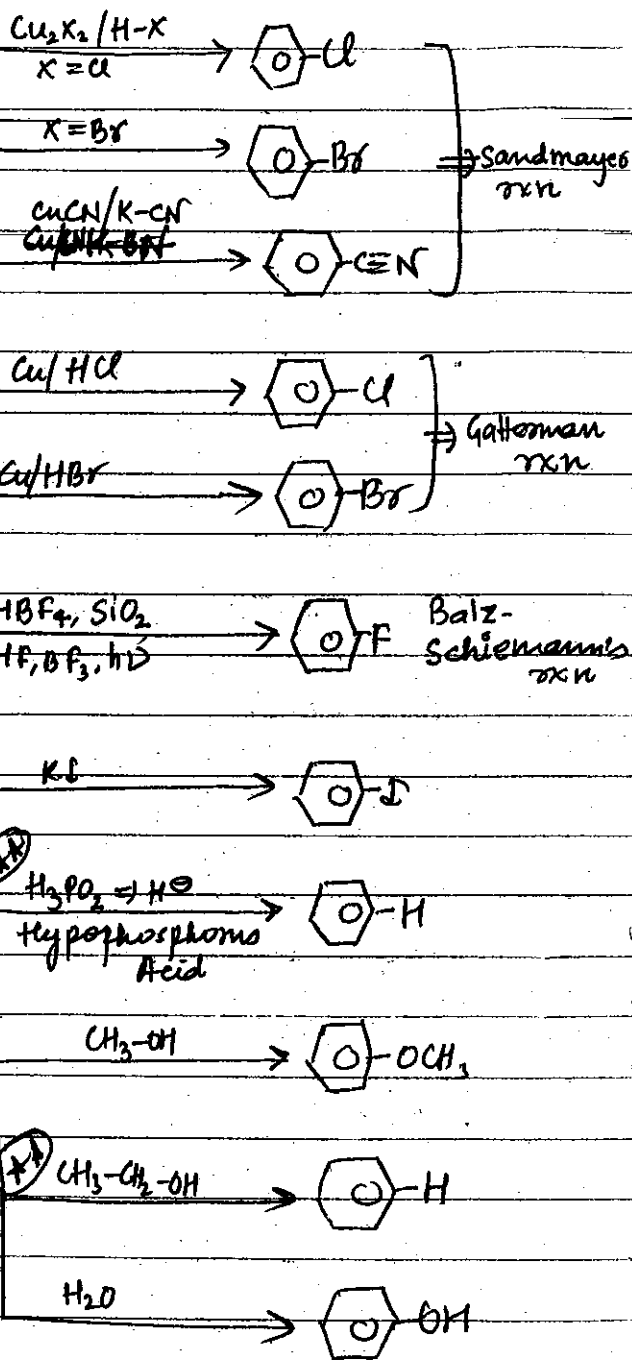 Cu₂X₂/H-X
X=Cl
-Cl
X=Br
-Br
⇒ Sandmayer
rxn
CuCN/K-CN
-C≡N
Cu/HCl
-Cl
⇒ Gatterman
rxn
Cu/HBr
-Br
HBF₄, SiO₂
HF, BF₃, hν
F
Balz-
Schiemann's
rxn
KI
-I
H₃PO₂ ⇒ H⊖
Hypophosphorus
Acid
-H
CH₃-OH
-OCH₃
CH₃-CH₂-OH
-H
H₂O
-OH